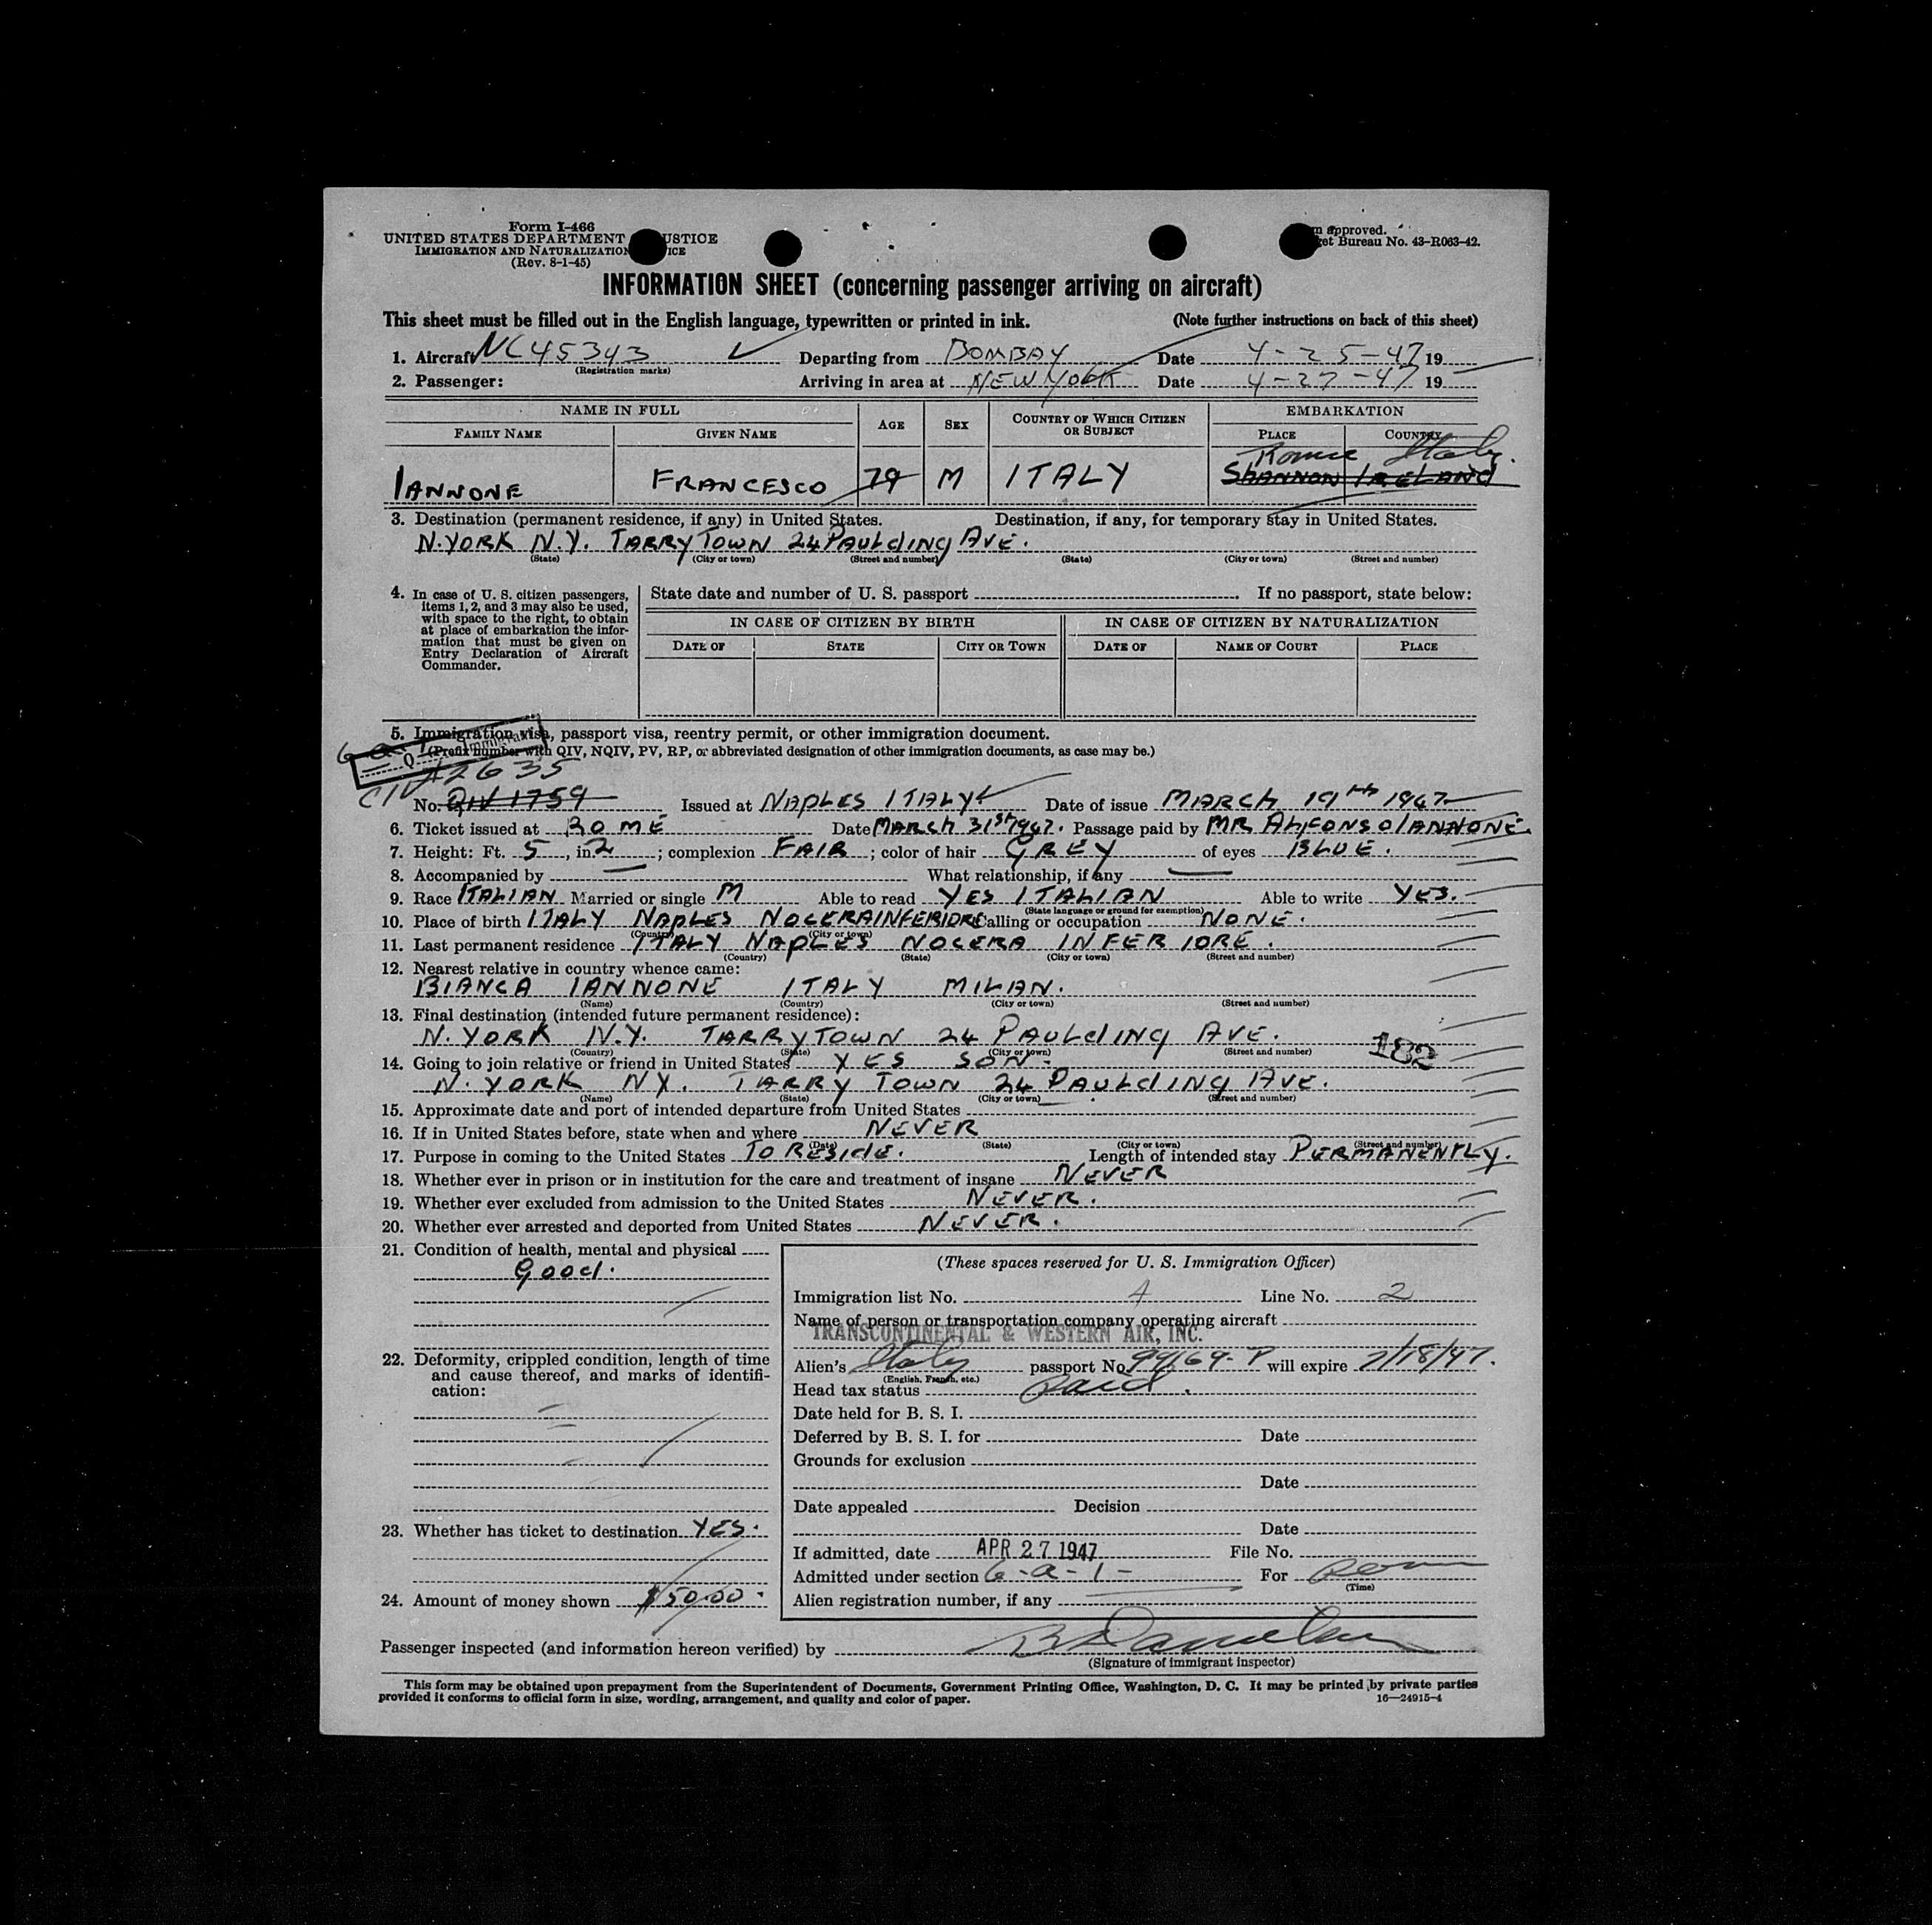 Form I-466
UNITED STATES DEPARTMENT USTICE
IMMIGRATION AND NATURALIZATION ICE
(Rev. 8-1-45)
approved.
et Bureau No. 43-R063-42.
INFORMATION SHEET (concerning passenger arriving on aircraft)
This sheet must be filled out in the English language, typewritten or printed in ink. (Note further instructions on back of this sheet)
1. Aircraft NC45343 Departing from BOMBAY Date 4-25-47 19
(Registration marks)
2. Passenger: Arriving in area at NEW YORK Date 4-27-47 19
NAME IN FULL AGE SEX COUNTRY OF WHICH CITIZEN OR SUBJECT EMBARKATION
FAMILY NAME GIVEN NAME PLACE COUNTRY
Rome Italy.
IANNONE FRANCESCO 79 M ITALY SHANNON IRELAND
3. Destination (permanent residence, if any) in United States. Destination, if any, for temporary stay in United States.
N.YORK N.Y. TARRYTOWN 24 PAULdING AVE.
(State) (City or town) (Street and number) (State) (City or town) (Street and number)
4. In case of U. S. citizen passengers, items 1, 2, and 3 may also be used, with space to the right, to obtain at place of embarkation the information that must be given on Entry Declaration of Aircraft Commander.
State date and number of U. S. passport If no passport, state below:
IN CASE OF CITIZEN BY BIRTH IN CASE OF CITIZEN BY NATURALIZATION
DATE OF STATE CITY OR TOWN DATE OF NAME OF COURT PLACE
5. Immigration visa, passport visa, reentry permit, or other immigration document.
(Prefix number with QIV, NQIV, PV, RP, or abbreviated designation of other immigration documents, as case may be.)
Q Immigrant
2635
No. QIV 1759 Issued at NAPLES ITALY Date of issue MARCH 19th 1947
6. Ticket issued at ROME Date MARCH 31st 1947. Passage paid by MR ALFONSO IANNONE.
7. Height: Ft. 5, in 2; complexion FAIR; color of hair GREY of eyes BLUE.
8. Accompanied by — What relationship, if any —
9. Race ITALIAN Married or single M Able to read YES ITALIAN Able to write YES.
(State language or ground for exemption)
10. Place of birth ITALY NAPLES NOCERAINFERIORE Calling or occupation NONE.
(Country) (City or town)
11. Last permanent residence ITALY NAPLES NOCERA INFERIORE.
(Country) (State) (City or town) (Street and number)
12. Nearest relative in country whence came:
BIANCA IANNONE ITALY MILAN.
(Name) (Country) (City or town) (Street and number)
13. Final destination (intended future permanent residence):
N. YORK N.Y. TARRYTOWN 24 PAULdING AVE.
(Country) (State) (City or town) (Street and number)
182
14. Going to join relative or friend in United States YES SON.
N. YORK NY. TARRY TOWN 24 PAULdING AVE.
(Name) (State) (City or town) (Street and number)
15. Approximate date and port of intended departure from United States
16. If in United States before, state when and where NEVER
(Date) (State) (City or town) (Street and number)
17. Purpose in coming to the United States TO RESIdE. Length of intended stay PERMANENTLY.
18. Whether ever in prison or in institution for the care and treatment of insane NEVER
19. Whether ever excluded from admission to the United States NEVER.
20. Whether ever arrested and deported from United States NEVER.
21. Condition of health, mental and physical
Good.
22. Deformity, crippled condition, length of time and cause thereof, and marks of identification:
23. Whether has ticket to destination YES.
24. Amount of money shown $50.00.
(These spaces reserved for U. S. Immigration Officer)
Immigration list No. 4 Line No. 2
Name of person or transportation company operating aircraft
TRANSCONTINENTAL & WESTERN AIR, INC.
Alien's Italy passport No 99169-P will expire 7/18/47.
(English, French, etc.)
Head tax status Paid.
Date held for B. S. I.
Deferred by B. S. I. for Date
Grounds for exclusion
Date
Date appealed Decision
Date
If admitted, date APR 27 1947 File No.
Admitted under section 6-a-1- For Perm
(Time)
Alien registration number, if any
Passenger inspected (and information hereon verified) by
(Signature of immigrant inspector)
This form may be obtained upon prepayment from the Superintendent of Documents, Government Printing Office, Washington, D. C. It may be printed by private parties
provided it conforms to official form in size, wording, arrangement, and quality and color of paper. 16—24915-4